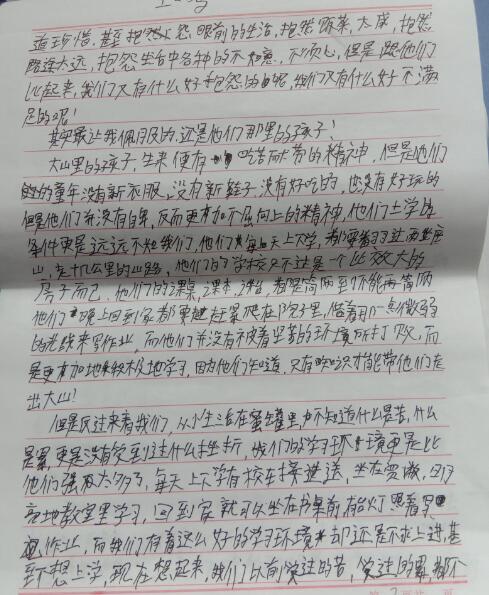 道珍惜,甚至抱怨,怨眼前的生活,抱怨饭菜太咸,抱怨
路途太远,抱怨生活中各种的不如意,不顺心,但是跟他们
比起来,我们又有什么好抱怨的呢,我们又有什么好不满
足的呢!
其实最让我佩服的,还是他们那里的孩子!
大山里的孩子,生来便有吃苦耐劳的精神,但是他们
的童年没有新衣服,没有新鞋子,没有好吃的,也没有好玩的
但是他们并没有自卑,反而更有加不屈向上的精神,他们上学的
条件更是远远不如我们,他们每天上下学,都要翻过两座
山,走十几公里的山路,他们的学校只不过是一个比较大的
房子而已,他们的课桌,课本,都是简陋到不能再简陋
他们晚上回到家都要趴在院子里,借着那一点微弱
的光线来写作业,而他们并没有被着坚苦的环境所打败,而
是更有加地积极地学习,因为他们知道,只有知识才能带他们走
出大山!
但是反过来看我们,从小生活在蜜罐里,不知道什么是苦,什么
是累,更是没有受到过什么挫折,我们的学习环境更是比
他们强太多了,每天上下学有校车接送,坐在宽敞,明
亮地教室里学习,回到家就可以坐在书桌前有台灯照着写
作业,而我们有着这么好的学习环境却还是不求上进,甚
至不想上学,现在想起来,我们以前受过的苦,受过的累,都不